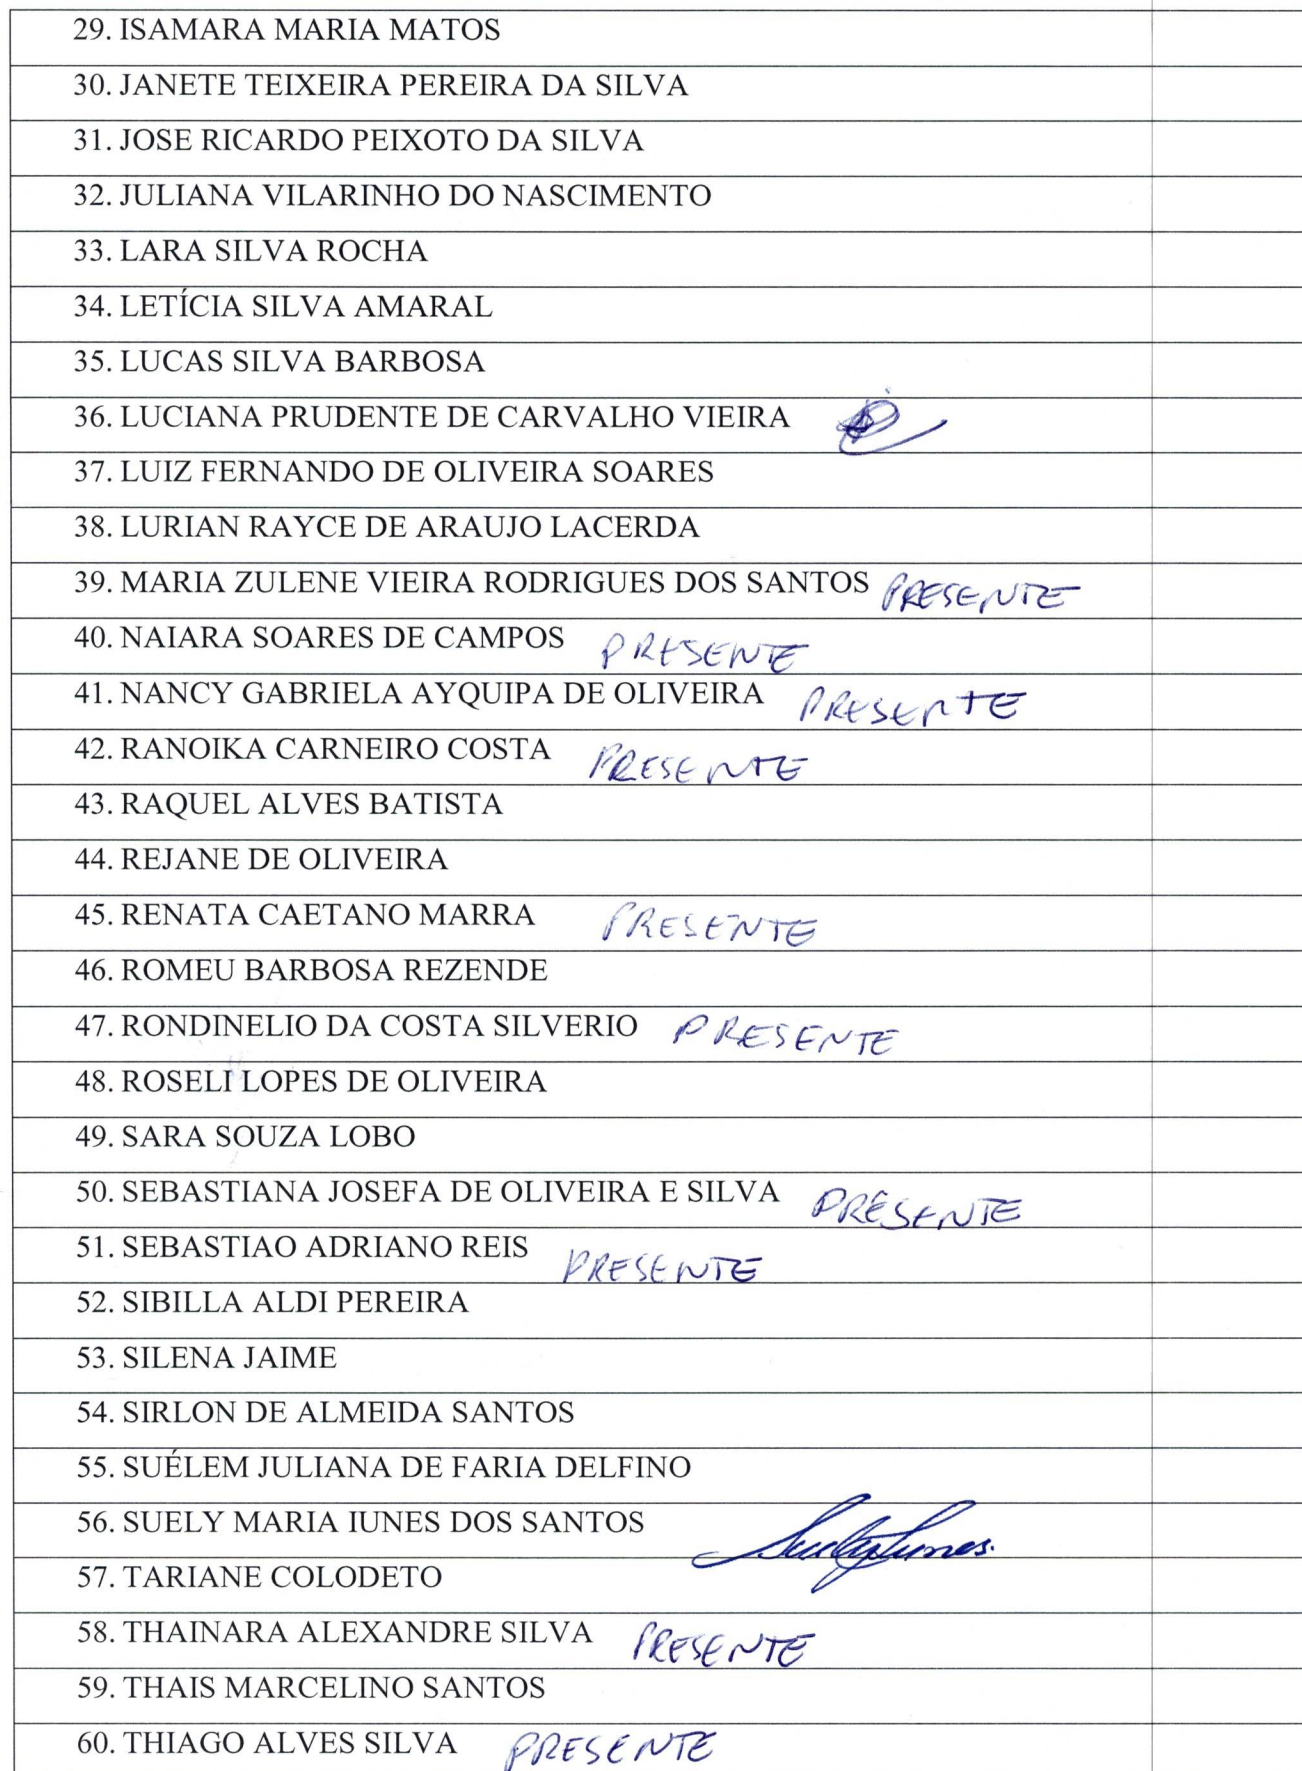 29. ISAMARA MARIA MATOS
30. JANETE TEIXEIRA PEREIRA DA SILVA
31. JOSE RICARDO PEIXOTO DA SILVA
32. JULIANA VILARINHO DO NASCIMENTO
33. LARA SILVA ROCHA
34. LETÍCIA SILVA AMARAL
35. LUCAS SILVA BARBOSA
36. LUCIANA PRUDENTE DE CARVALHO VIEIRA
37. LUIZ FERNANDO DE OLIVEIRA SOARES
38. LURIAN RAYCE DE ARAUJO LACERDA
39. MARIA ZULENE VIEIRA RODRIGUES DOS SANTOS PRESENTE
40. NAIARA SOARES DE CAMPOS PRESENTE
41. NANCY GABRIELA AYQUIPA DE OLIVEIRA PRESENTE
42. RANOIKA CARNEIRO COSTA PRESENTE
43. RAQUEL ALVES BATISTA
44. REJANE DE OLIVEIRA
45. RENATA CAETANO MARRA PRESENTE
46. ROMEU BARBOSA REZENDE
47. RONDINELIO DA COSTA SILVERIO PRESENTE
48. ROSELI LOPES DE OLIVEIRA
49. SARA SOUZA LOBO
50. SEBASTIANA JOSEFA DE OLIVEIRA E SILVA PRESENTE
51. SEBASTIAO ADRIANO REIS PRESENTE
52. SIBILLA ALDI PEREIRA
53. SILENA JAIME
54. SIRLON DE ALMEIDA SANTOS
55. SUÉLEM JULIANA DE FARIA DELFINO
56. SUELY MARIA IUNES DOS SANTOS Suely Iunes.
57. TARIANE COLODETO
58. THAINARA ALEXANDRE SILVA PRESENTE
59. THAIS MARCELINO SANTOS
60. THIAGO ALVES SILVA PRESENTE